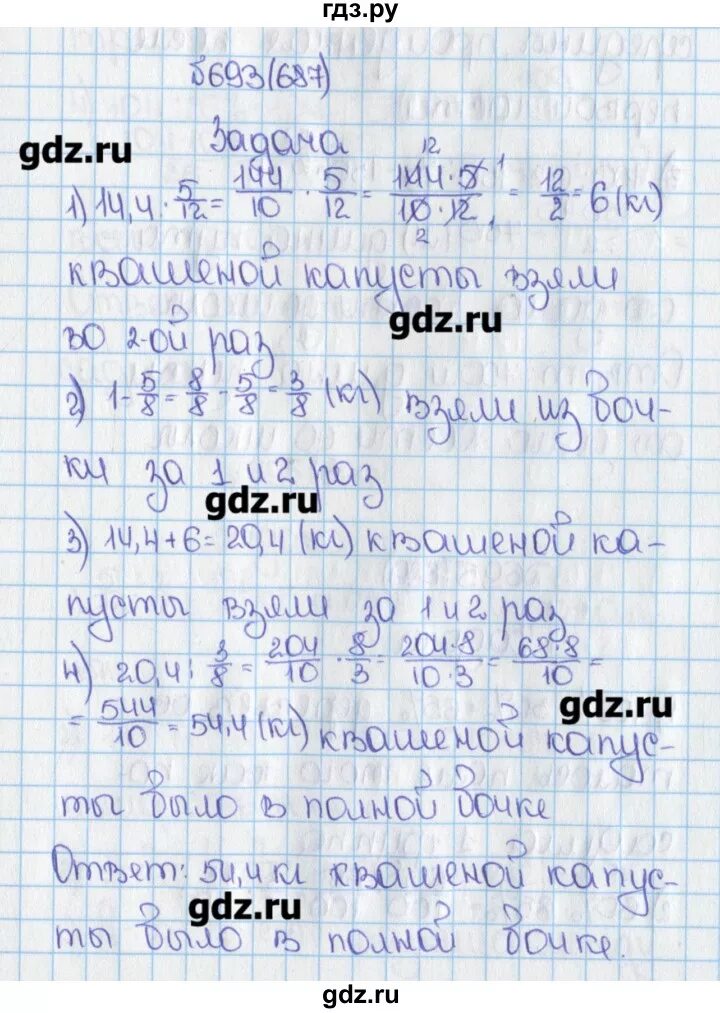 гдз.ру
№693(687)
Задача
gdz.ru
1) 14,4 · 5/12 = 144/10 · 5/12 = 144·5/10·12 = 12/2 = 6 (кг)
12 1
2 1
квашеной капусты взяли
gdz.ru
во 2-ой раз
2) 1-5/8=8/8-5/8=3/8 (кг) взяли из боч-
ки за 1 и 2 раз
gdz.ru
3) 14,4+6=20,4 (кг) квашеной ка-
пусты взяли за 1 и 2 раз
4) 20,4 : 3/8 = 204/10 · 8/3 = 204·8/10·3 = 68·8/10 =
gdz.ru
= 544/10 = 54,4 (кг) квашеной капус-
ты было в полной бочке
Ответ: 54,4 кг квашеной капус-
gdz.ru
ты было в полной бочке.
gdz.ru